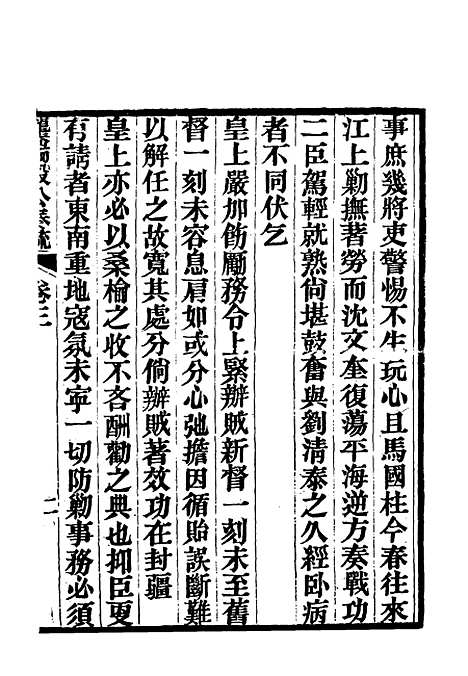 事庶幾將吏警惕不生玩心且馬國柱今春往來
江上勦撫著勞而沈文奎復蕩平海逆方奏戰功
二臣駕輕就熟尙堪鼓奮與劉清泰之久經臥病
者不同伏乞
皇上嚴加飭勵務令上緊辦賊新督一刻未至舊
督一刻未容息肩如或分心弛擔因循貽誤斷難
以解任之故寬其處分倘辦賊著效功在封疆
皇上亦必以桑榆之收不吝酬勸之典也抑臣更
有請者東南重地寇氛未寧一切防勦事務必須
卷三
二